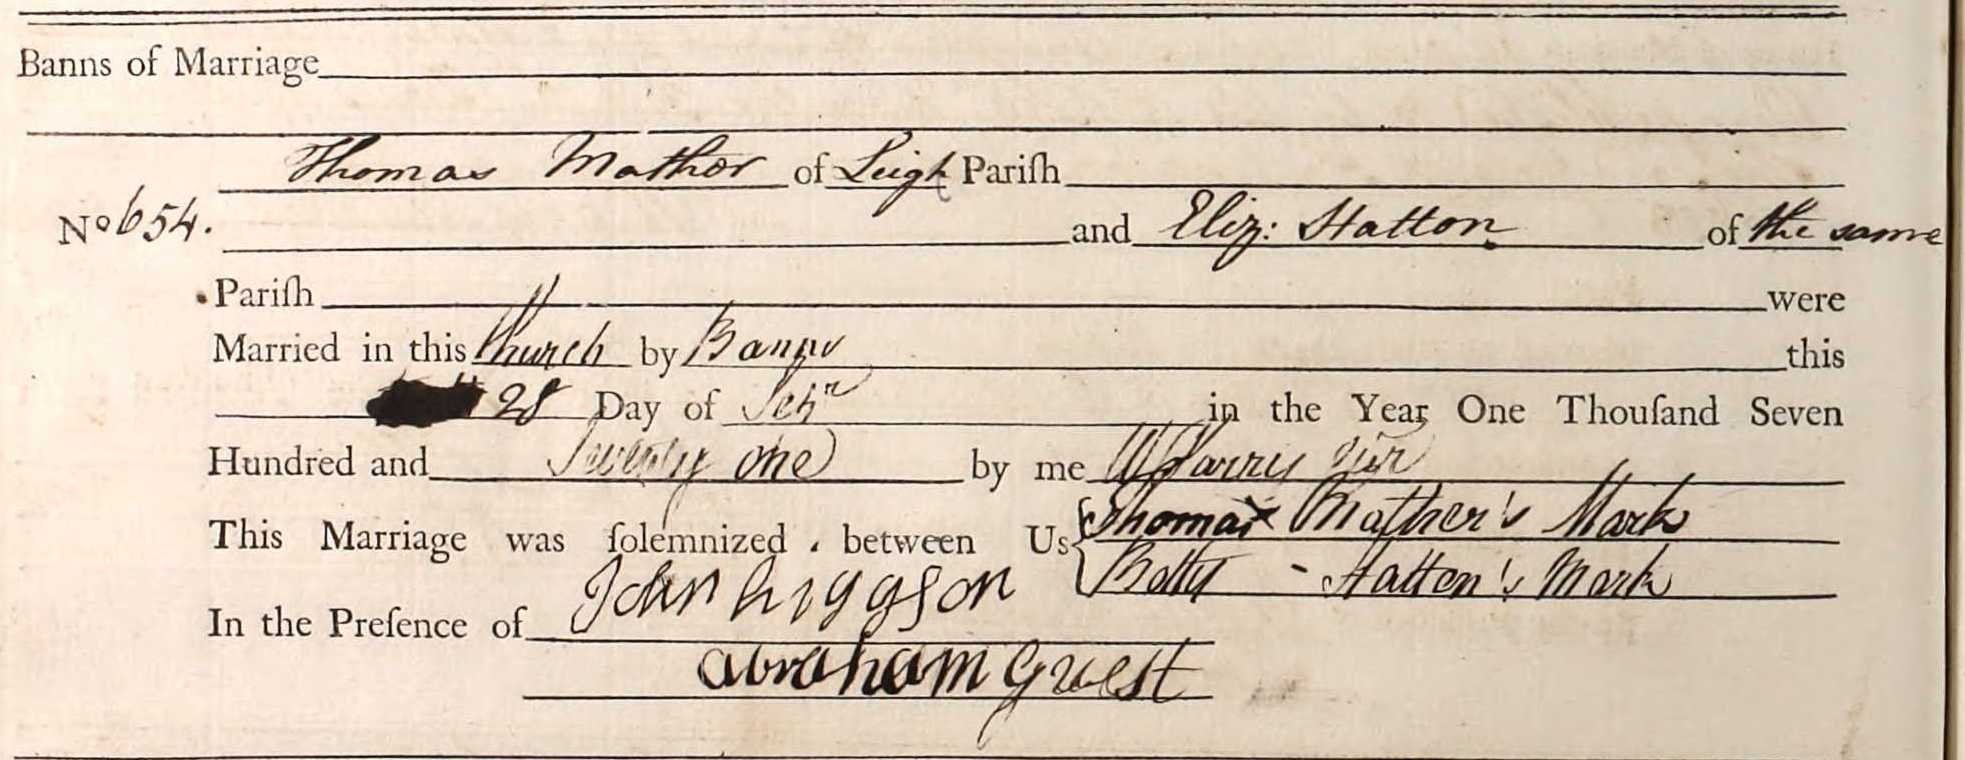 Banns of Marriage
Thomas Mather of Leigh Pariſh
No 654. and Eliz: Hatton of the same
Pariſh were
Married in this Church by Banns this
28 Day of in the Year One Thouſand Seven
Hundred and Seventy one by me
This Marriage was ſolemnized between Us Thomas x Mather's Mark
Betty - Hatton's Mark
In the Preſence of John higgson
abraham Guest